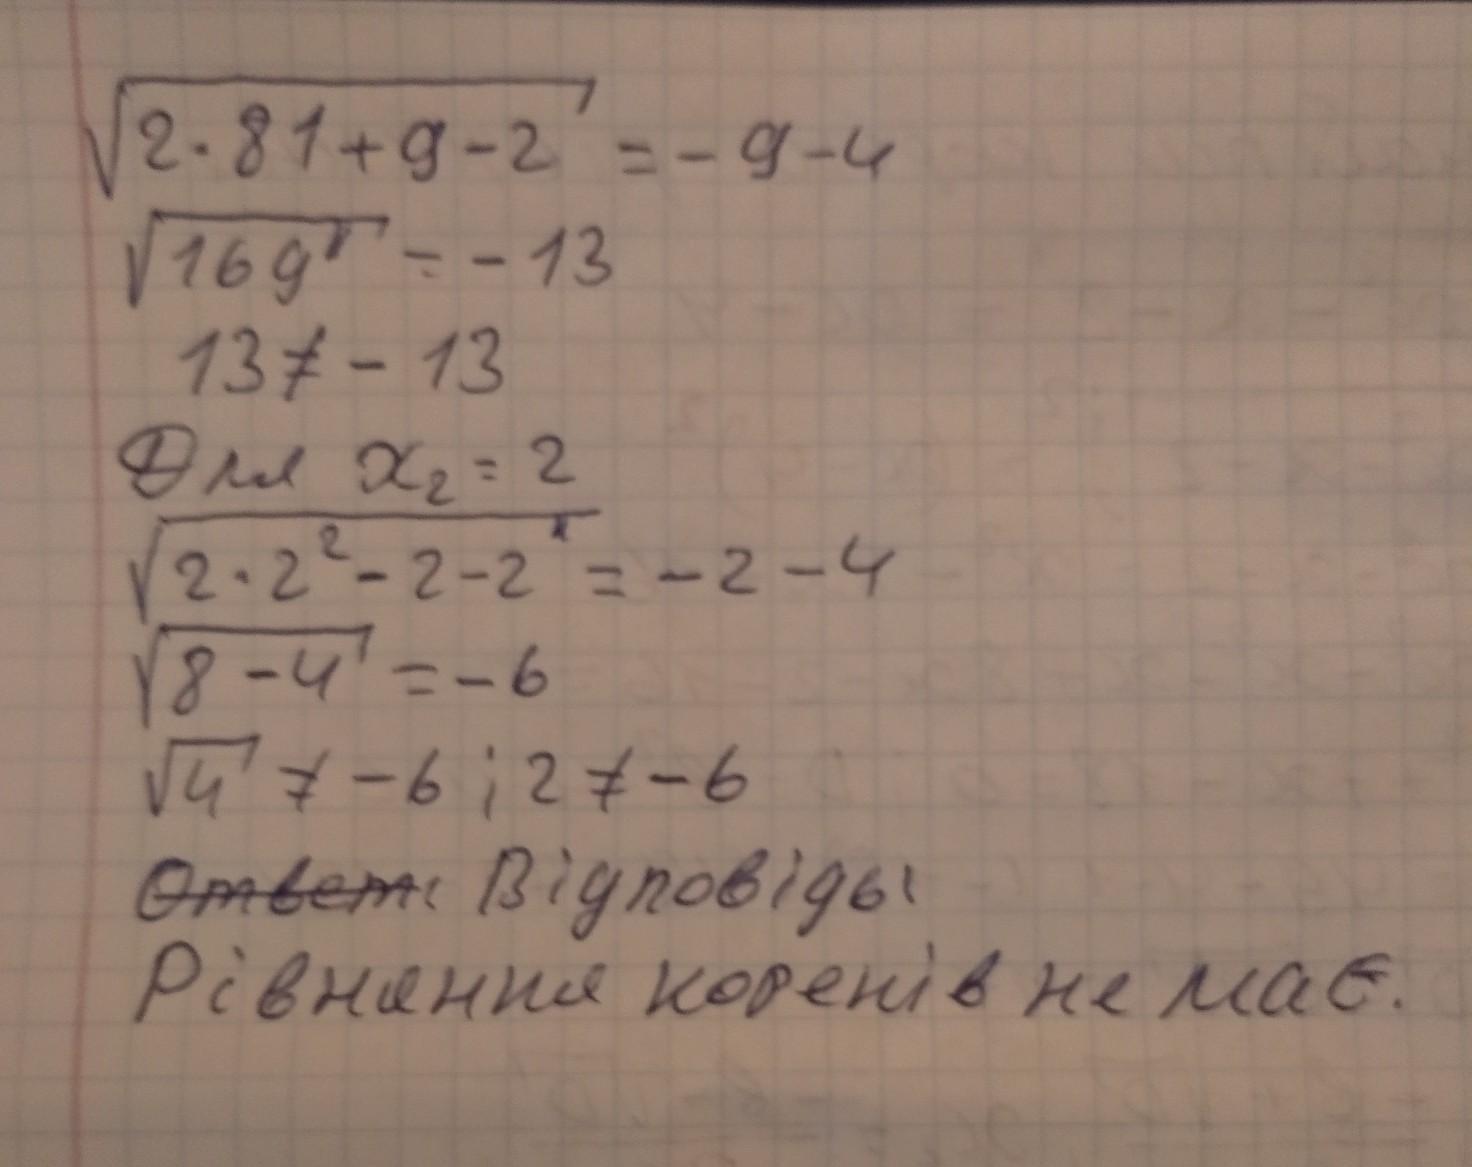 √2·81+9-2 = -9-4
√169 = -13
13≠-13
Для x₂=2
√2·2²-2-2 = -2-4
√8-4 = -6
√4 ≠ -6; 2≠-6
Ответ: Відповідь:
Рівняння коренів не має.